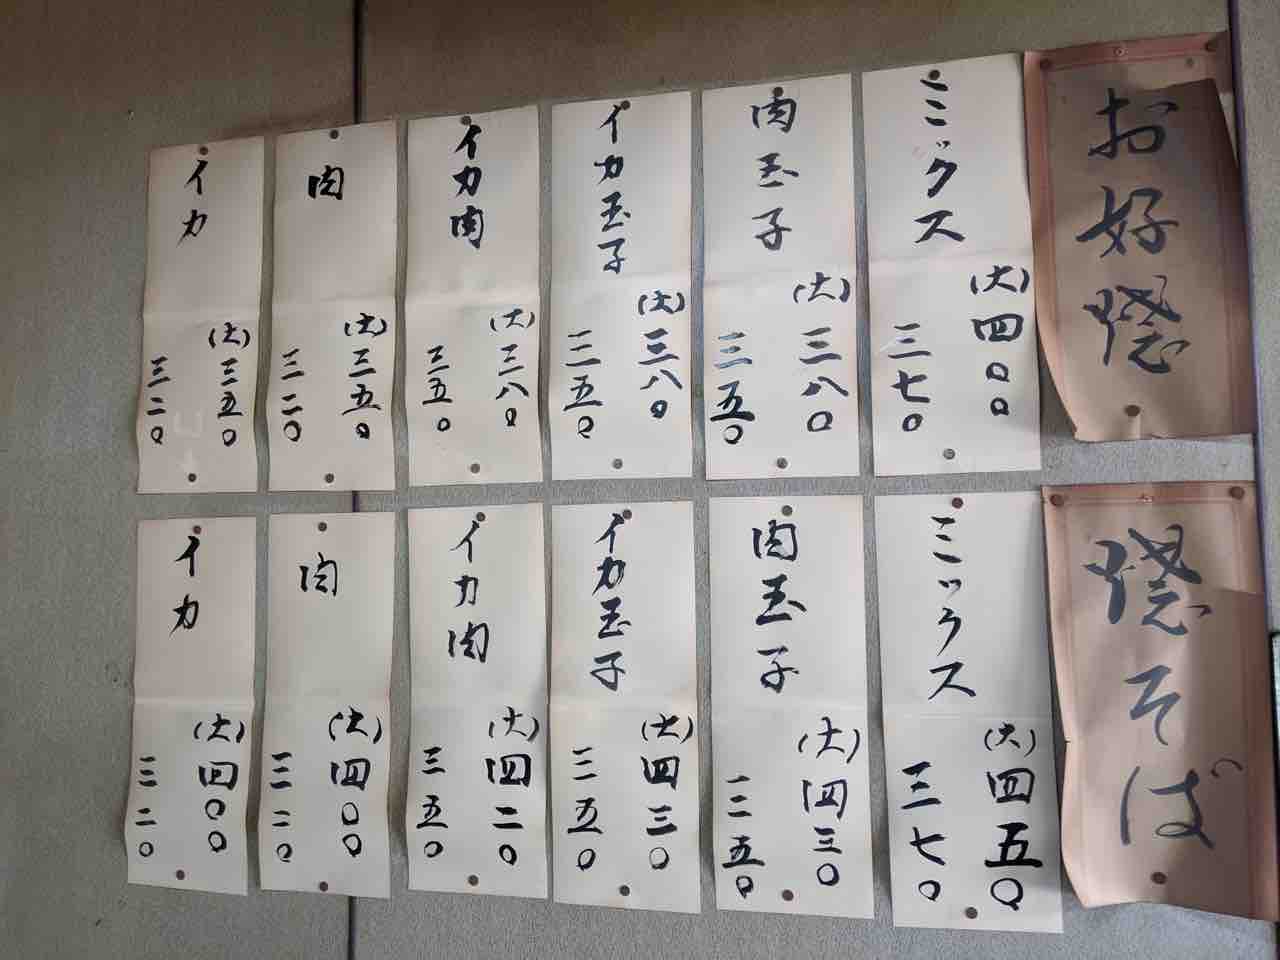 お好焼
ミニックス
(大)四〇〇
三七〇
肉玉子
(大)三八〇
三五〇
イカ玉子
(大)三八〇
三五〇
イカ肉
(大)三八〇
三五〇
肉
(大)三五〇
三二〇
イカ
(大)三五〇
三二〇
焼そば
ミックス
(大)四五〇
三七〇
肉玉子
(大)四三〇
三五〇
イカ玉子
(大)四三〇
三五〇
イカ肉
(大)四二〇
三五〇
肉
(大)四〇〇
三二〇
イカ
(大)四〇〇
三二〇